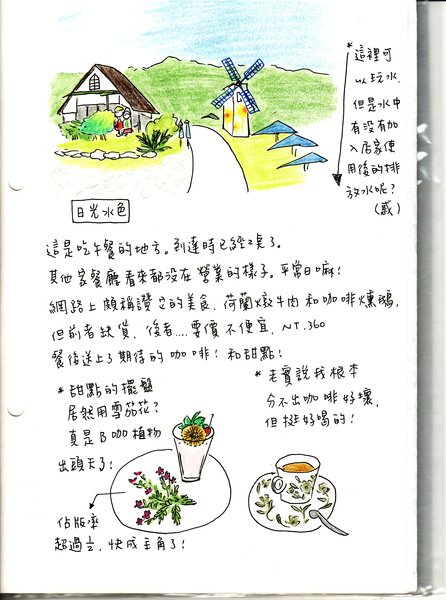 *這裡可
以玩水,
但是水中
有沒有加
入居家使
用後的排
放水呢?
(惑)
日光水色
這是吃午餐的地方。到達時已經2點了。
其他家餐廳看來都沒在營業的樣子。平常日嘛!
網路上頗稱讚它的美食,荷蘭燉牛肉和咖啡燻雞,
但前者缺貨,後者....要價不便宜,NT.360
餐後送上了期待的咖啡!和甜點!
*甜點的擺盤
居然用雪茄花?
真是B咖植物
出頭天了!
佔版率
超過½,快成主角了!
*老實說我根本
分不出咖啡好壞,
但挺好喝的!